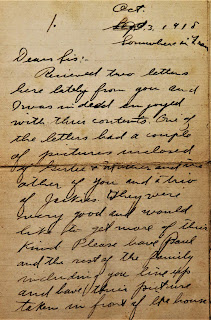 1.
Oct.
Sept 3, 1918
Somewhere in
Dear Sis:-
Received two letters
here lately from you and
I was indeed enjoyed
with three contents. One of
the letters had a couple
of pictures inclosed
of Bertie &
other of you and a trio
of They were
very good and would
like to get more of their
kind. Please have Paul
and the rest of the family
including you line up
and have their picture
taken in front of the house